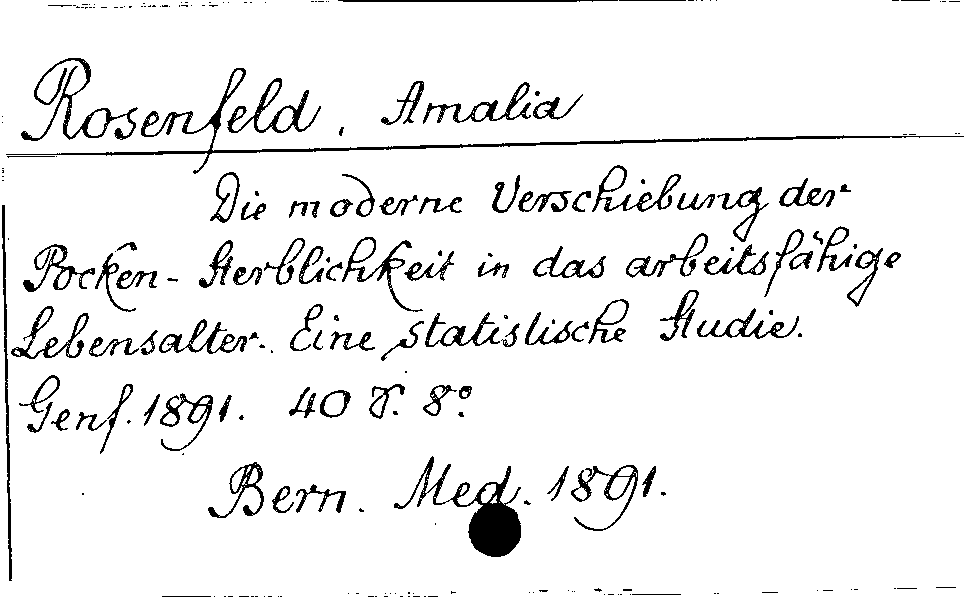 Rosenfeld, Amalia
Die moderne Verschiebung der
Pocken-Sterblichkeit in das arbeitsfähige
Lebensalter. Eine statistische Studie.
Genf. 1891. 40 S. 8°
Bern. Med. 1891.